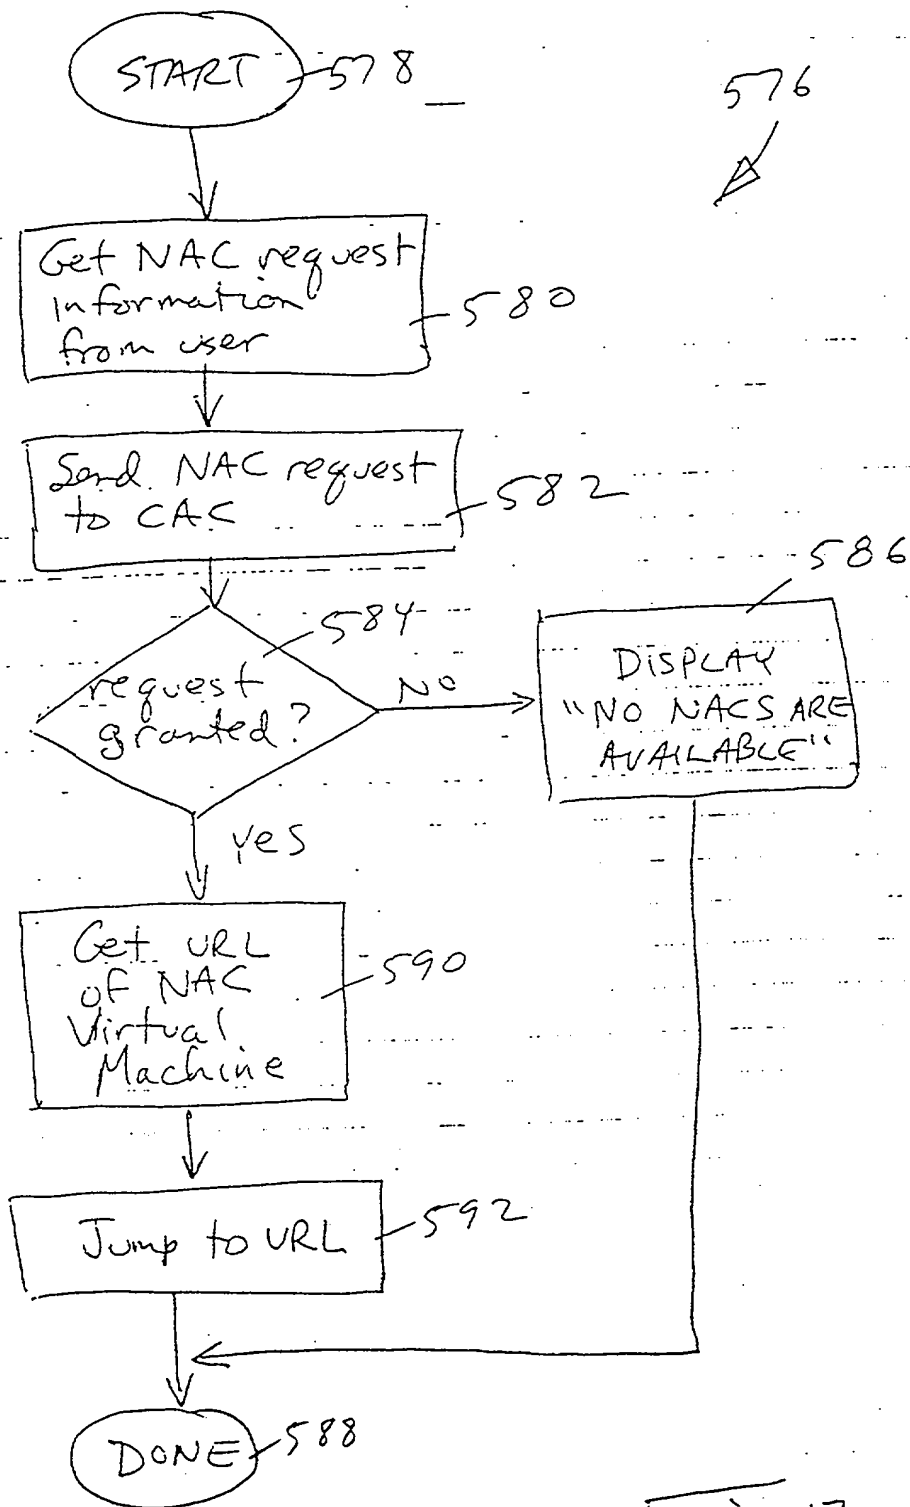 START 578
576
Get NAC request
information
from user
580
Send NAC request
to CAC
582
584
request
granted?
NO
586
DISPLAY
"NO NACS ARE
AVAILABLE"
Yes
Get URL
of NAC
Virtual
Machine
590
Jump to URL
592
DONE 588